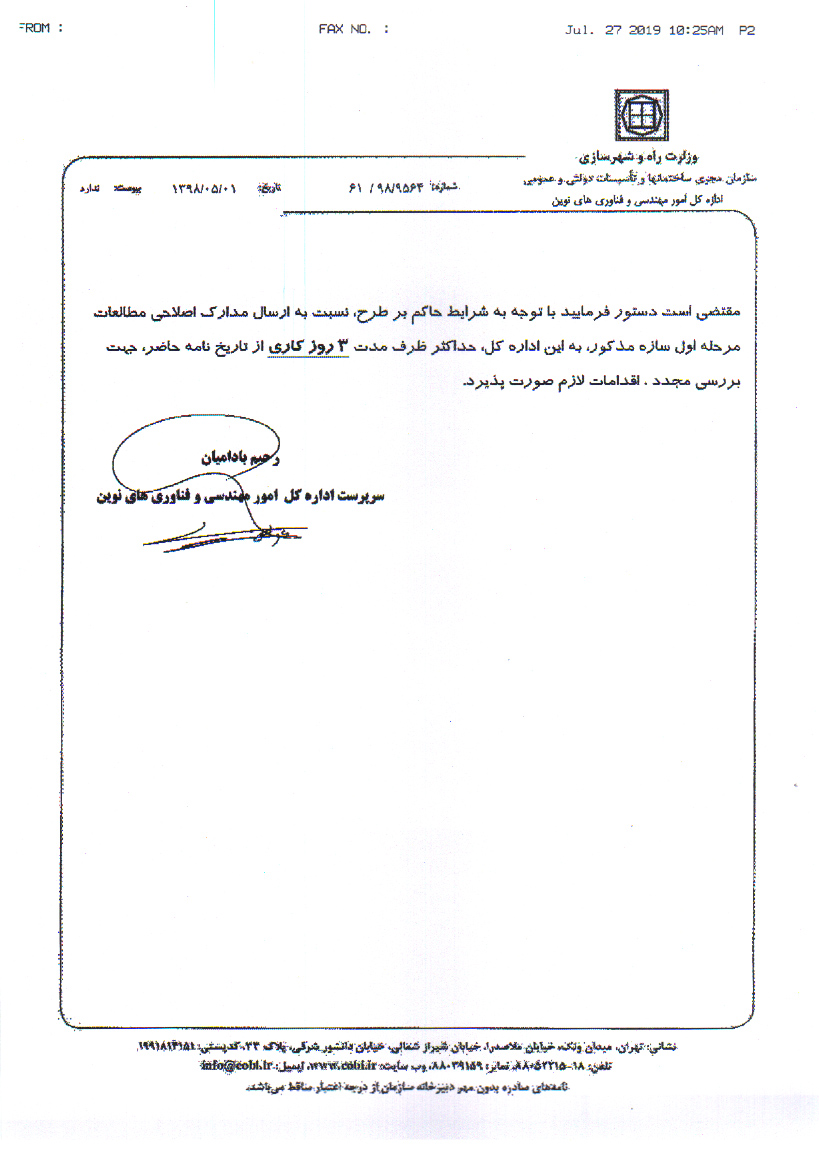 FROM :
FAX NO. :
Jul. 27 2019 10:25AM P2
وزارت راه و شهرسازی
سازمان مجری ساختمانها و تأسیسات دولتی و عمومی
اداره کل امور مهندسی و فناوری های نوین
شماره: ۶۱ / ۹۸/۹۵۶۴
تاریخ: ۱۳۹۸/۰۵/۰۱
پیوست: ندارد
مقتضی است دستور فرمایید با توجه به شرایط حاکم بر طرح، نسبت به ارسال مدارک اصلاحی مطالعات
مرحله اول سازه مذکور، به این اداره کل، حداکثر ظرف مدت ۳ روز کاری از تاریخ نامه حاضر، جهت
بررسی مجدد ، اقدامات لازم صورت پذیرد.
رحیم بادامیان
سرپرست اداره کل امور مهندسی و فناوری های نوین
نشانی: تهران، میدان ونک، خیابان ملاصدرا، خیابان شیراز شمالی، خیابان دانشور شرقی، پلاک ۲۳، کدپستی:
تلفن: ۱۸-۸۸۰۵۲۲۱۵، نمابر: ۸۸۰۳۹۱۵۹، وب سایت: www.cobi.ir، ایمیل: info@cobi.ir
نامه‌های صادره بدون مهر دبیرخانه سازمان از درجه اعتبار ساقط می‌باشد.